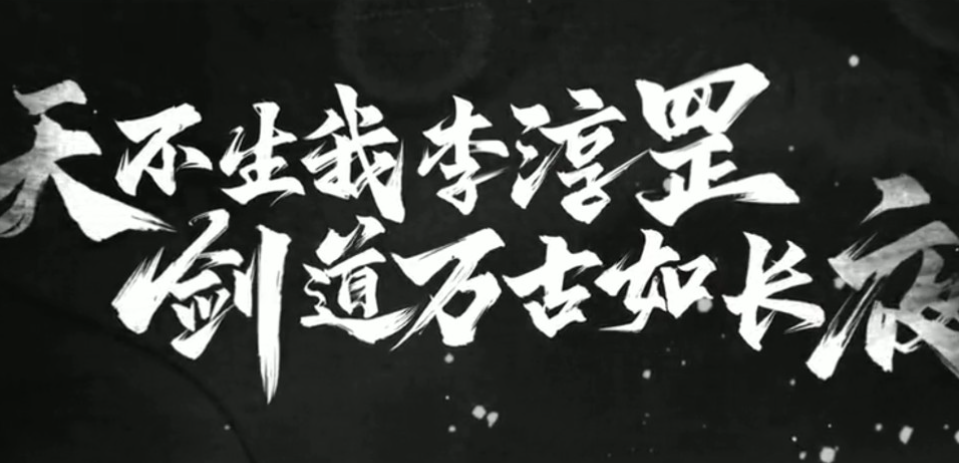 天不生我李淳罡
剑道万古如长夜